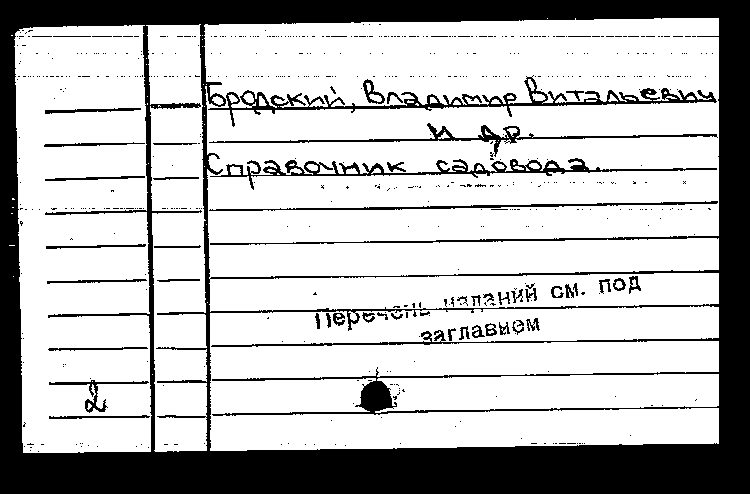 Бродский, Владимир Витальевич
и др.
Справочник садовода.
Перечень изданий см. под
заглавием
2